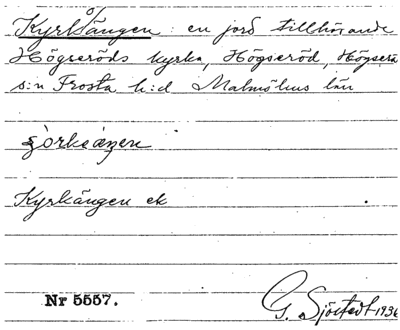 Kyrkängen : en jord tillhörande
Högseröds kyrka, Högseröd, Högserö
s:n Frosta h:d Malmöhus län
Kyrkängen ek
Nr 5557.
G. Sjöstedt 1936